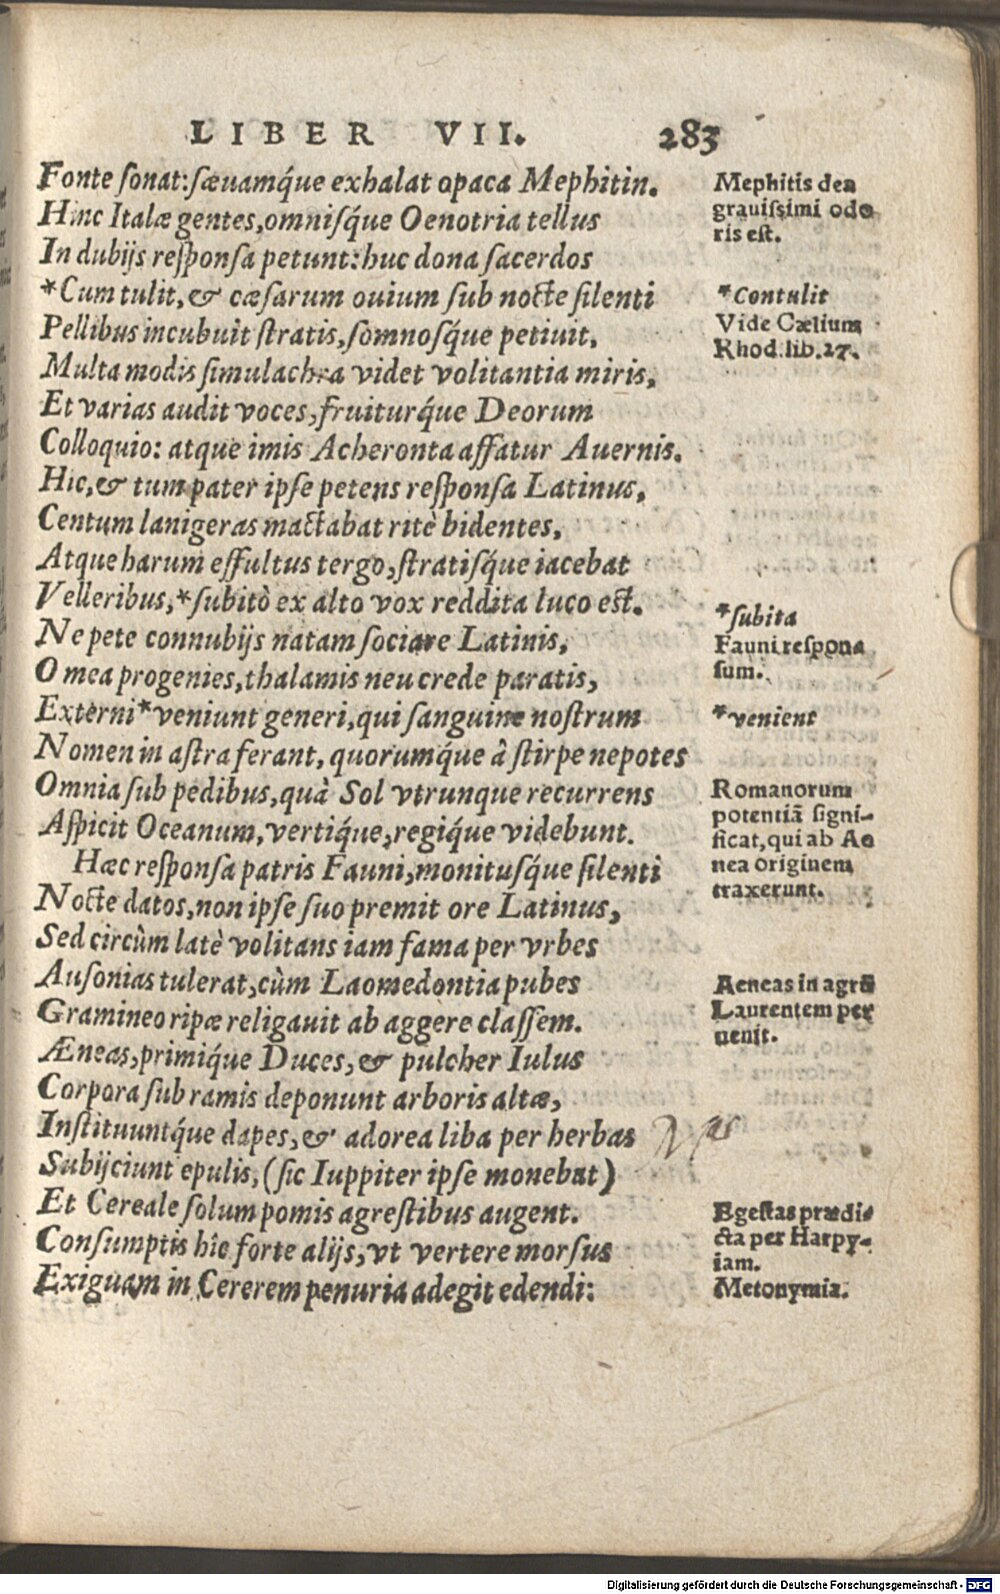 LIBER VII. 283
Fonte sonat: sæuamq́ue exhalat opaca Mephitin.
Hinc Italæ gentes, omnisq́ue Oenotria tellus
In dubijs responsa petunt: huc dona sacerdos
*Cum tulit, & cæsarum ouium sub nocte silenti
Pellibus incubuit stratis, somnosq́ue petiuit.
Multa modis simulachra videt volitantia miris,
Et varias audit voces, fruiturq́ue Deorum
Colloquio: atque imis Acheronta affatur Auernis.
Hic, & tum pater ipse petens responsa Latinus,
Centum lanigeras mactabat ritè bidentes,
Atque harum effultus tergo, stratisq́ue iacebat
Velleribus, *subitò ex alto vox reddita luco est.
Ne pete connubijs natam sociare Latinis,
O mea progenies, thalamis neu crede paratis,
Externi *veniunt generi, qui sanguine nostrum
Nomen in astra ferant, quorumq́ue à stirpe nepotes
Omnia sub pedibus, quà Sol vtrunque recurrens
Aspicit Oceanum, vertiq́ue, regiq́ue videbunt.
Hæc responsa patris Fauni, monitusq́ue silenti
Nocte datos, non ipse suo premit ore Latinus,
Sed circùm latè volitans iam fama per vrbes
Ausonias tulerat, cùm Laomedontia pubes
Gramineo ripæ religauit ab aggere classem.
Æneas, primiq́ue Duces, & pulcher Iulus
Corpora sub ramis deponunt arboris altæ,
Instituuntq́ue dapes, & adorea liba per herbas
Subijciunt epulis, (sic Iuppiter ipse monebat)
Et Cereale solum pomis agrestibus augent.
Consumptis hîc forte alijs, vt vertere morsus
Exiguam in Cererem penuria adegit edendi:
Mephitis dea
grauissimi odo
ris est.
*Contulit
Vide Cælium
Rhod. lib. 27.
*subita
Fauni respon
sum.
*venient
Romanorum
potentiā signi-
ficat, qui ab Ae
nea originem
traxerunt.
Aeneas in agrū
Laurentem per
uenit.
Egestas prædi-
cta per Harpy-
iam.
Metonymia.
Digitalisierung gefördert durch die Deutsche Forschungsgemeinschaft - DFG